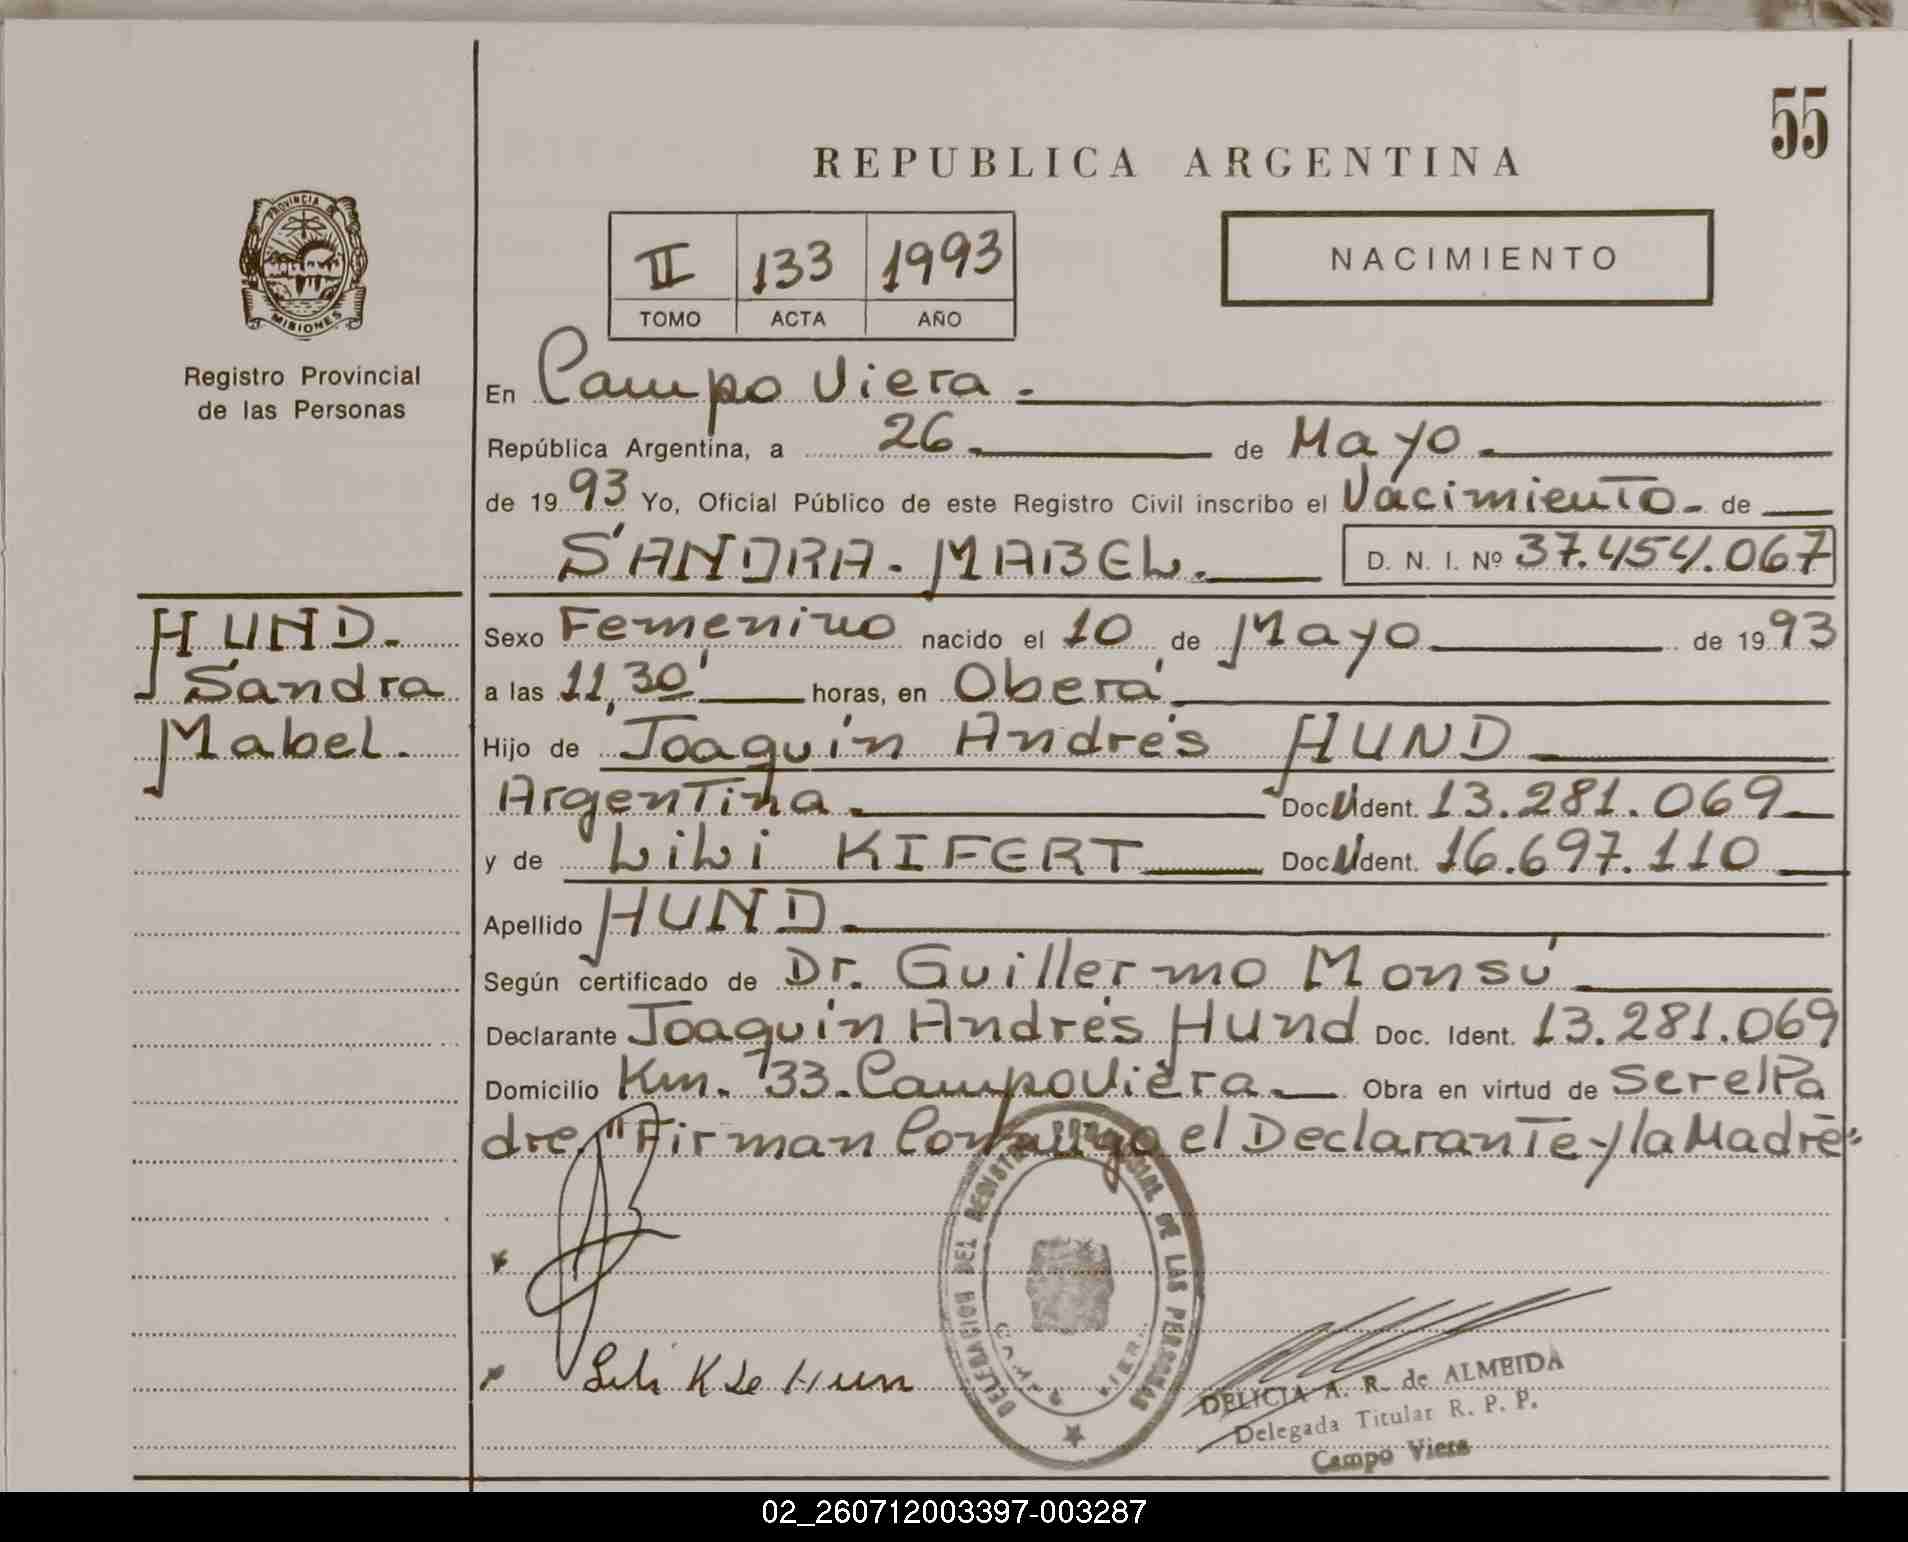 55
REPUBLICA ARGENTINA
PROVINCIA DE
MISIONES
Registro Provincial
de las Personas
II 133 1993
TOMO ACTA AÑO
NACIMIENTO
En Campo Viera.
República Argentina, a 26 de Mayo
de 1993 Yo, Oficial Público de este Registro Civil inscribo el Nacimiento de
SANDRA MABEL. D. N. I. Nº 37.454.067
HUND.
Sandra
Mabel.
Sexo Femenino nacido el 10 de Mayo de 1993
a las 11,30' horas, en Oberá
Hijo de Joaquín Andrés HUND
Argentina Doc. Ident. 13.281.069
y de Lili KIFERT Doc. Ident. 16.697.110
Apellido HUND
Según certificado de Dr. Guillermo Monsú
Declarante Joaquín Andrés Hund Doc. Ident. 13.281.069
Domicilio Km. 33. Campo Viera Obra en virtud de ser el Pa
dre. "Firman Conmigo el Declarante y la Madre"
DELEGACION DEL REGISTRO PROVINCIAL DE LAS PERSONAS
CAMPO VIERA
Lili K de Hun
DELICIA A. R. de ALMEIDA
Delegada Titular R. P. P.
Campo Viera
02_260712003397-003287